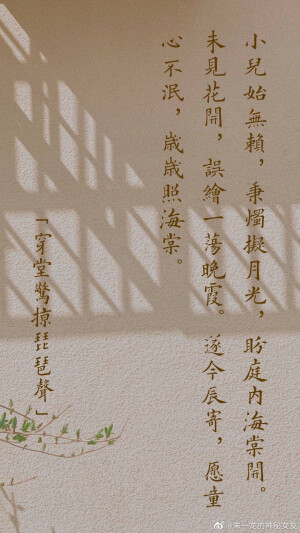 小兒始無賴，秉燭擬月光，盼庭內海棠開。
未見花開，誤繪一蕩晚霞。遂今辰寄，願童
心不泯，歲歲照海棠。
「穿堂驚掠琵琶聲」
@朱一龙的神秘女友